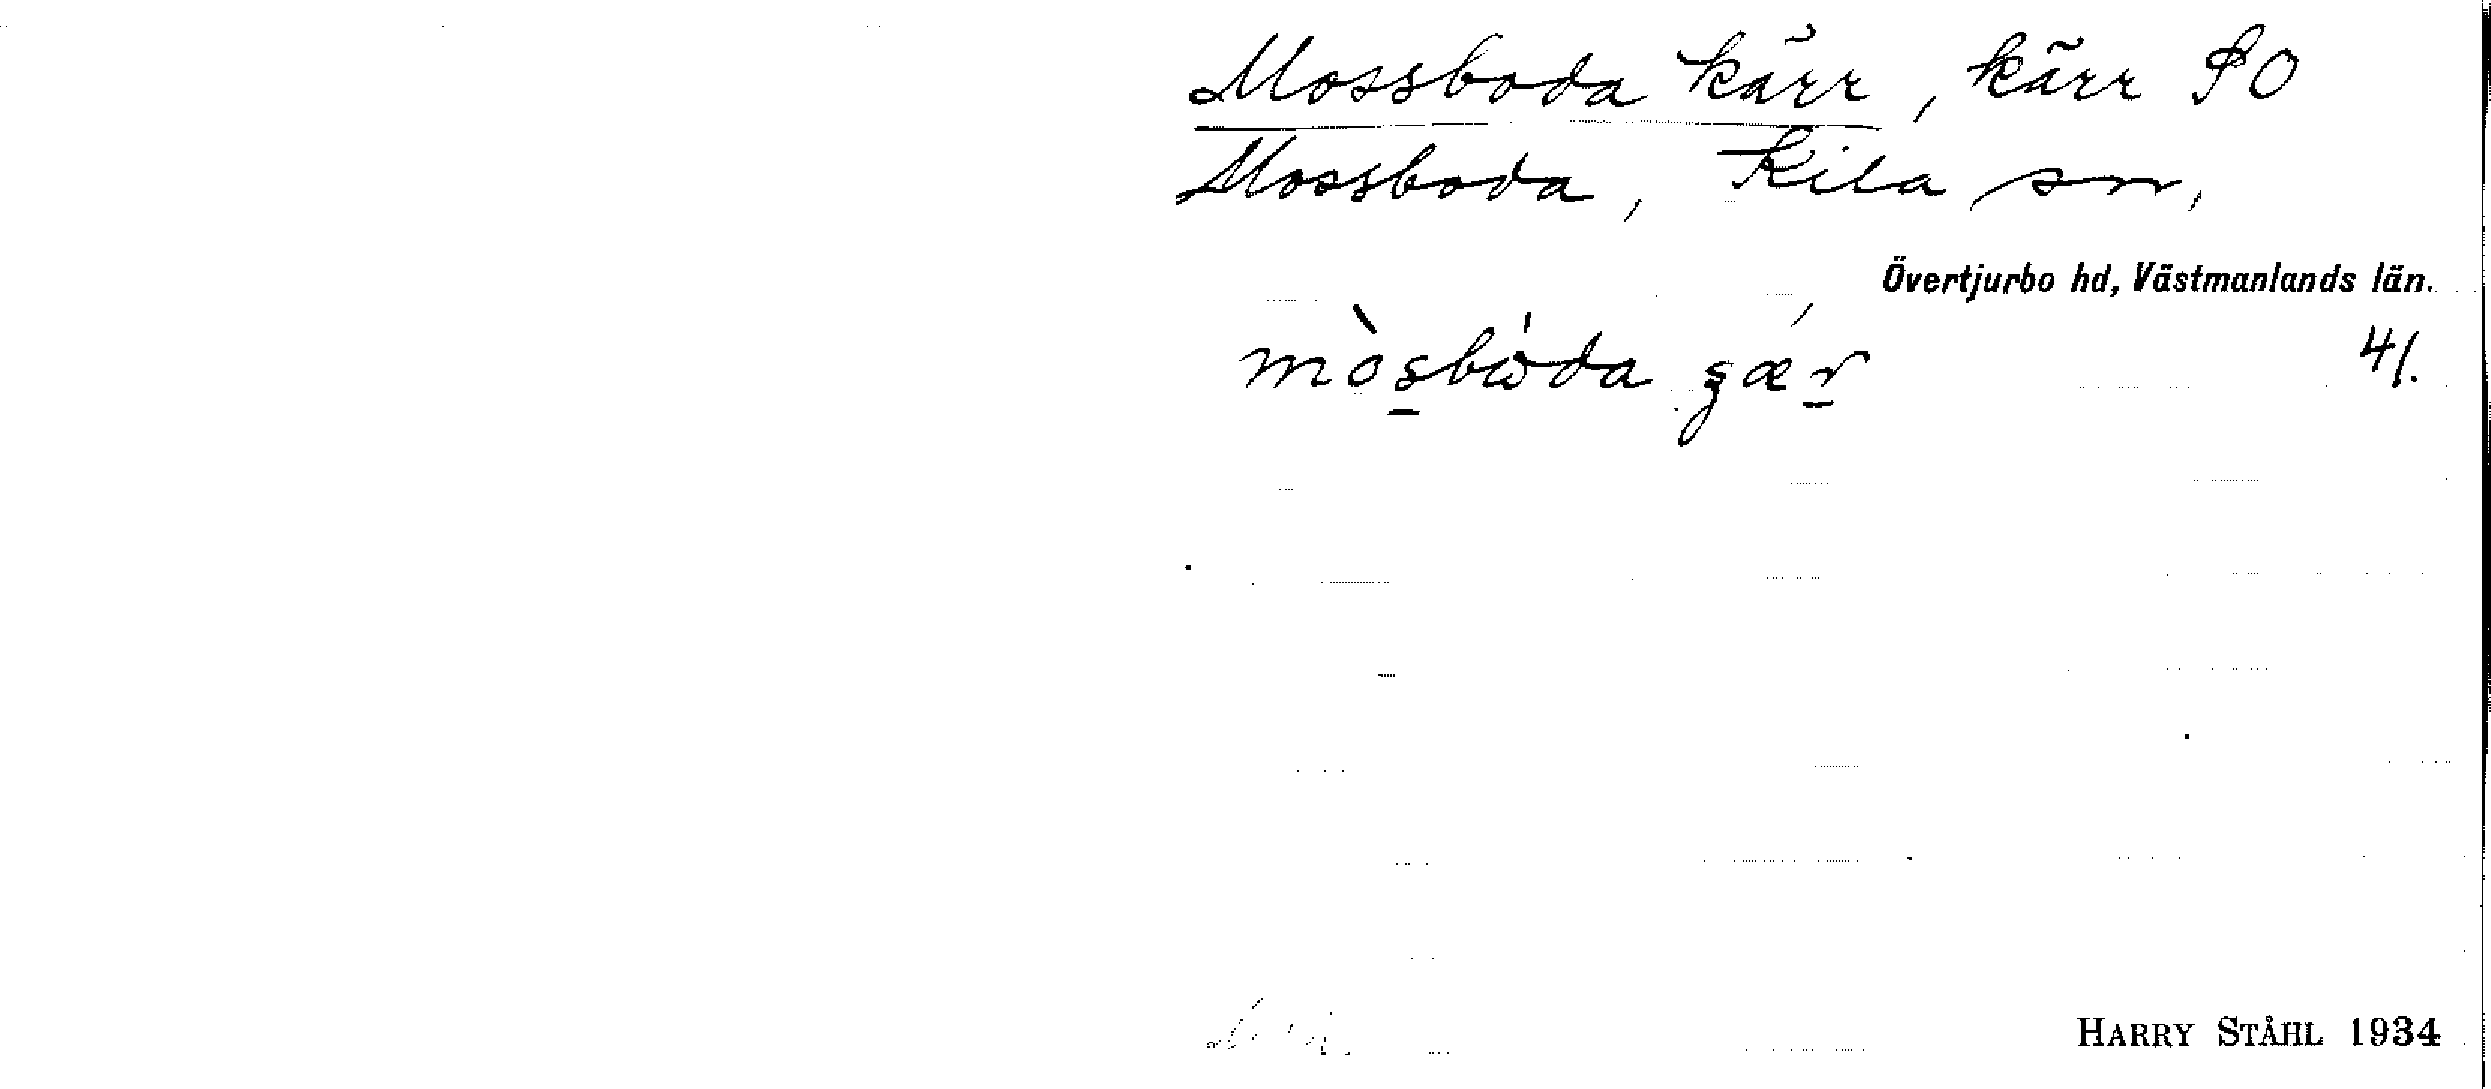 Mossboda kärr, kärr SO
Mossboda, Kila sn,
Övertjurbo hd, Västmanlands län.
mòsbὼda
41.
HARRY STÅHL 1934